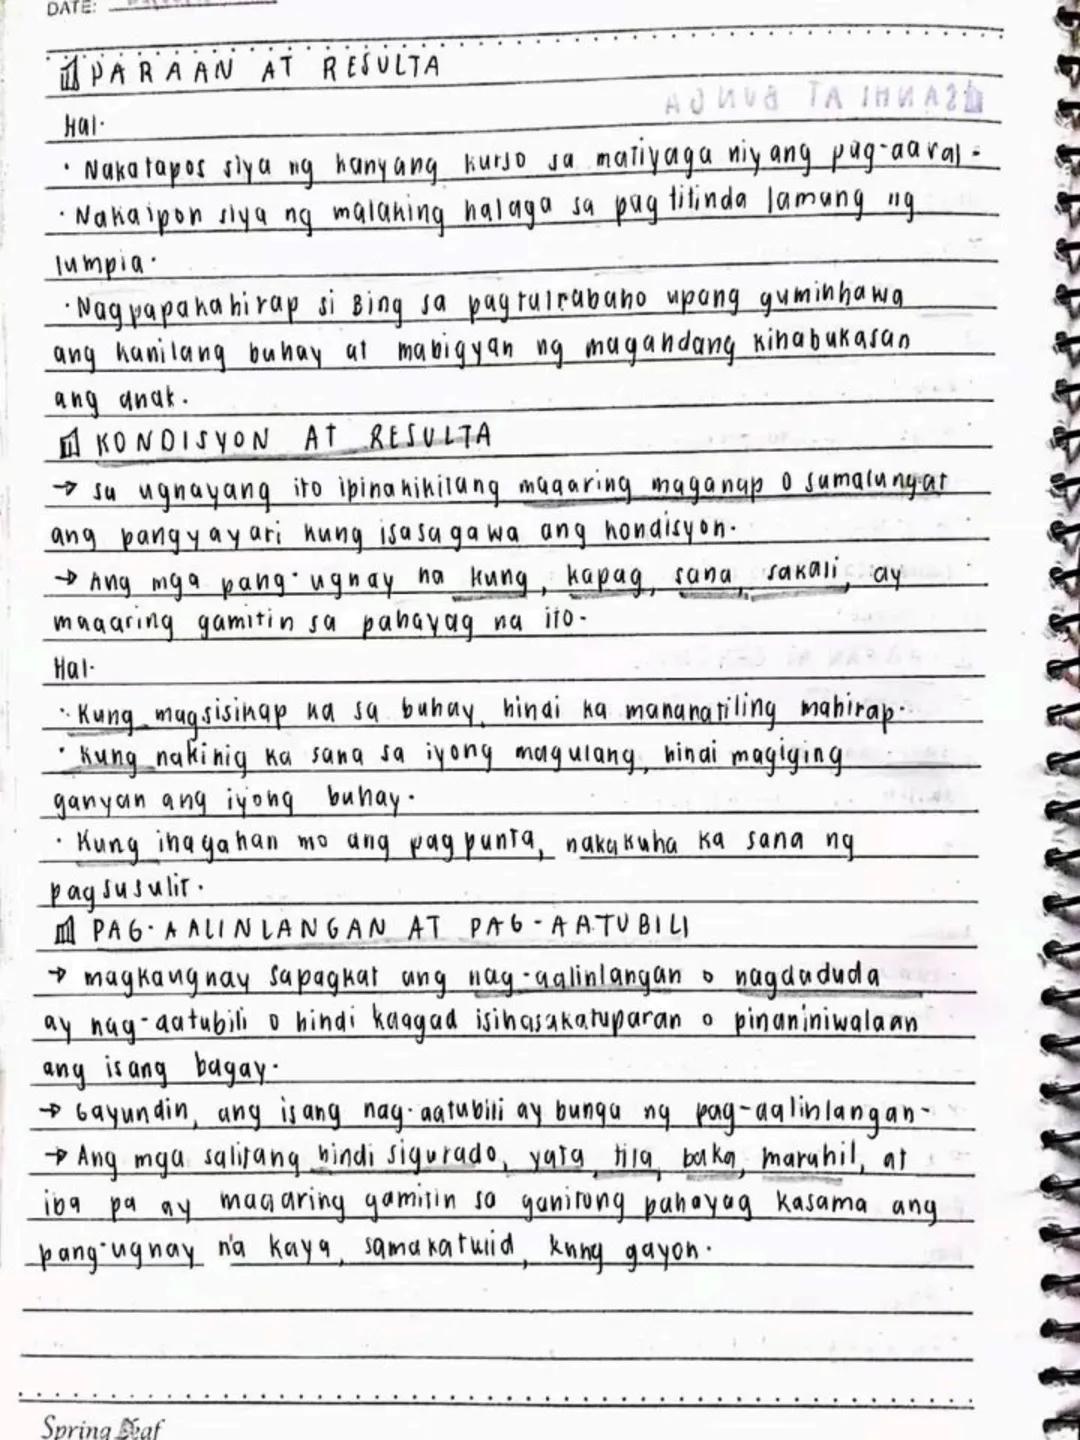 DATE:
PARAAN AT RESULTA
SANHI AT BUNGA
Hal.
· Nakatapos siya ng kanyang kurso sa matiyaga niyang pag-aaral.
· Nakaipon siya ng malaking halaga sa pagtitinda lamang ng
lumpia.
· Nagpapakahirap si Bing sa pagtatrabaho upang guminhawa
ang kanilang buhay at mabigyan ng magandang kinabukasan
ang anak.
KONDISYON AT RESULTA
→ sa ugnayang ito ipinakikilang maaaring maganap o sumalungat
ang pangyayari kung isasagawa ang kondisyon.
→ Ang mga pang-ugnay na kung, kapag, sana, sakali, ay
maaaring gamitin sa pahayag na ito.
Hal.
· Kung magsisikap ka sa buhay, hindi ka mananatiling mahirap.
· Kung nakinig ka sana sa iyong magulang, hindi magiging
ganyan ang iyong buhay.
· Kung inagahan mo ang pagpunta, nakakuha ka sana ng
pagsusulit.
PAG-AALINLANGAN AT PAG-AATUBILI
→ magkaugnay sapagkat ang nag-aalinlangan o nagdududa
ay nag-aatubili o hindi kaagad isinasakatuparan o pinaniniwalaan
ang isang bagay.
→ Gayundin, ang isang nag-aatubili ay bunga ng pag-aalinlangan-
→ Ang mga salitang hindi sigurado, yata, tila, baka, marahil, at
iba pa ay maaaring gamitin sa ganitong pahayag kasama ang
pang-ugnay na kaya, samakatuid, kung gayon.
Spring Leaf